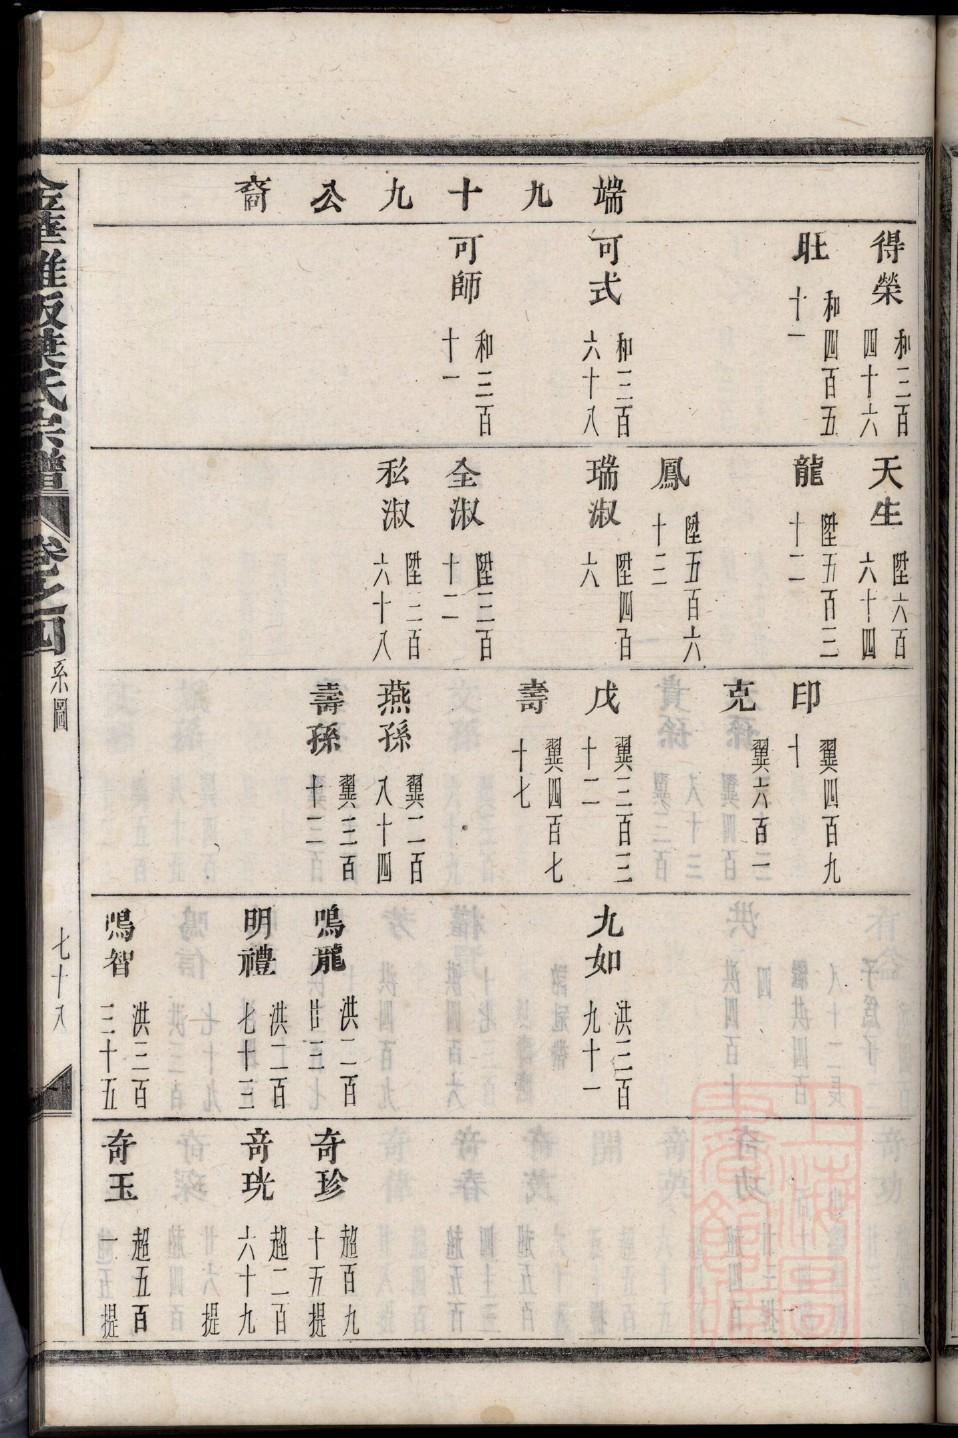 端九十九公裔
得榮 和三百四十六
瓧 和四百五十一
可式 和三百六十八
可師 和三百十一
天生 陞六百六十四
龍 陞五百三十二
鳳 陞五百六十三
瑞淑 陞四百六
全淑 陞三百十二
私淑 陞三百六十八
印 翼四百九十
克 翼六百二
戊 翼三百三十二
壽 翼四百七十七
燕孫 翼二百八十四
壽孫 翼三百十三
九如 洪三百九十一
鳴龍 洪二百廿三
明禮 洪二百七十三
鳴智 洪三百三十五
奇珍 超百九十五提
奇珖 超二百六十九提
奇玉 超五百一提
葉氏宗譜 卷之四 系圖 七十八